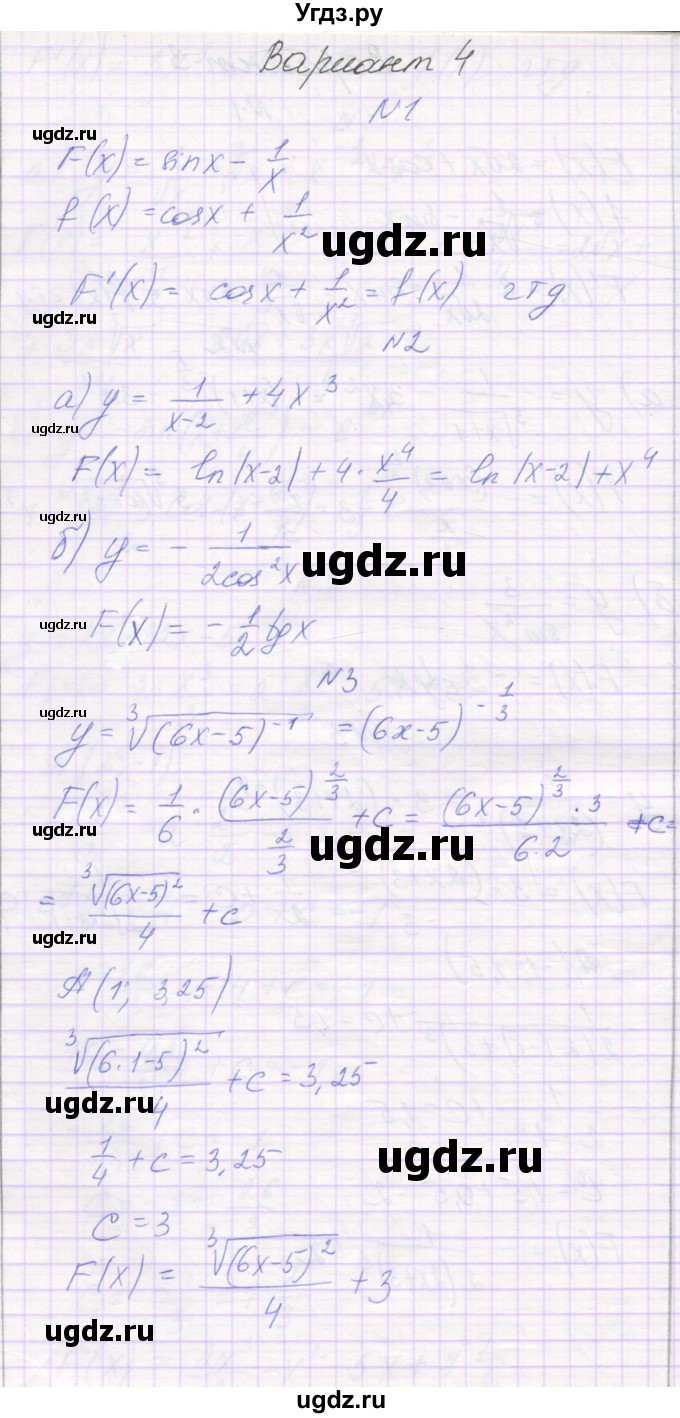 Угдз.ру
Вариант 4
N1
ugdz.ru
F(x) = sinx - 1/x
f(x) = cosx + 1/x²
ugdz.ru
F'(x) = cosx + 1/x² = f(x) чтд
ugdz.ru
N2
а) y = 1/(x-2) + 4x³
ugdz.ru
F(x) = ln|x-2| + 4·x⁴/4 = ln|x-2| + x⁴
ugdz.ru
б) y = - 1/(2cos²x)
ugdz.ru
ugdz.ru
F(x) = - 1/2 tgx
N3
ugdz.ru
y = ∛((6x-5)⁻¹) = (6x-5)^(-1/3)
F(x) = 1/6 · (6x-5)^(2/3) / (2/3) + c = (6x-5)^(2/3) · 3 / (6·2) + c =
ugdz.ru
ugdz.ru
= ∛((6x-5)²)/4 + c
ugdz.ru
A(1; 3,25)
∛((6·1-5)²)/4 + c = 3,25
ugdz.ru
1/4 + c = 3,25
ugdz.ru
c = 3
F(x) = ∛((6x-5)²)/4 + 3
ugdz.ru
ugdz.ru